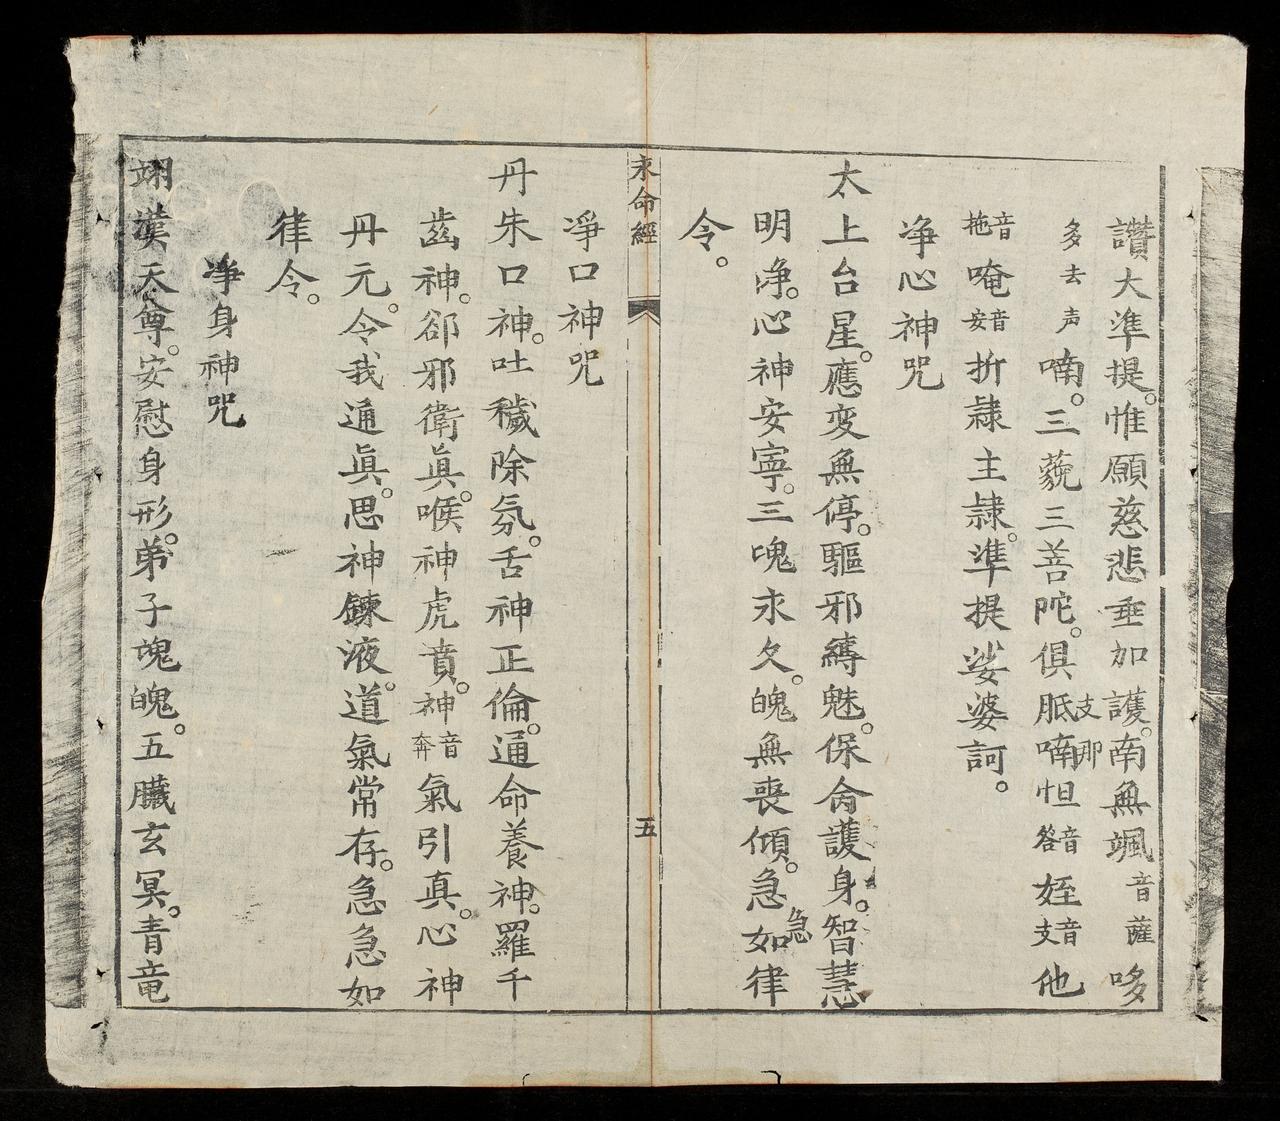 讚大準提。惟願慈悲垂加護。南無颯音薩哆
多去声喃。三藐三菩陀。俱胝支喃那怛音答姪音支他
音拖唵音安折隷主隷。準提娑婆訶。
净心神咒
太上台星。應变無停。驅邪縛魅。保命護身。智慧
明净。心神安寧。三魂永久。魄無喪傾。急急如律
令。
求命經
五
净口神咒
丹朱口神。吐穢除氛。舌神正倫。通命養神。羅千
齒神。郤邪衛真。喉神虎賁。神音奔氣引真。心神
丹元。令我通真。思神鍊液。道氣常存。急急如
律令。
净身神咒
翊漢天尊。安慰身形。弟子魂魄。五臟玄冥。青竜